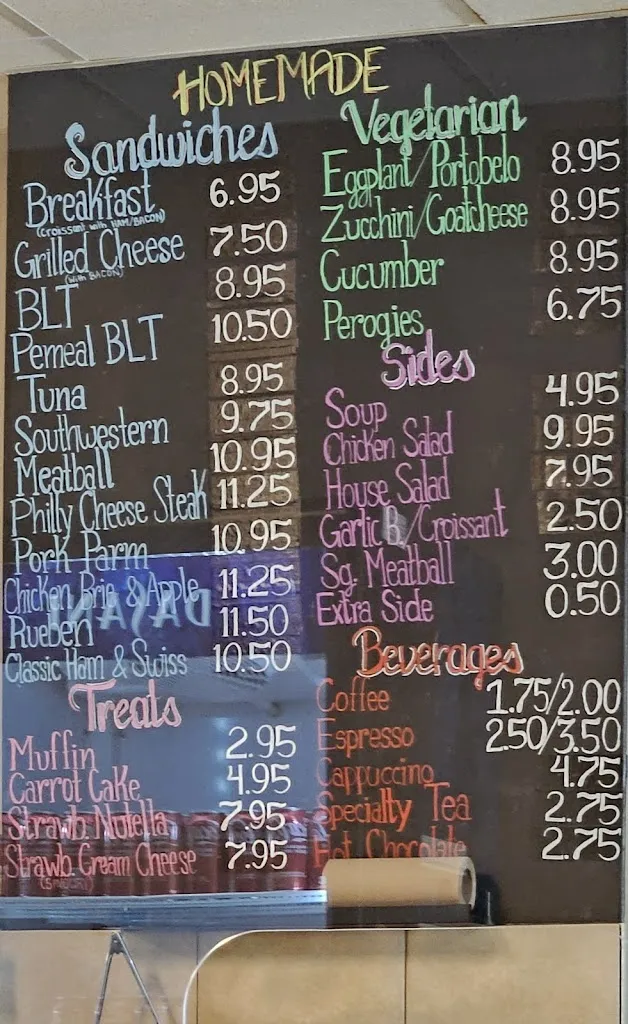 HOMEMADE
Sandwiches
Breakfast 6.95
(Croissant with HAM/BACON)
Grilled Cheese 7.50
(with BACON)
BLT 8.95
Pemeal BLT 10.50
Tuna 8.95
Southwestern 9.75
Meatball 10.95
Philly Cheese Steak 11.25
Pork Parm 10.95
Chicken Brie & Apple 11.25
Rueben 11.50
Classic Ham & Swiss 10.50
Treats
Muffin 2.95
Carrot Cake 4.95
Strawb. Nutella 7.95
Strawb. Cream Cheese 7.95
Vegetarian
Eggplant/Portobelo 8.95
Zucchini/Goatcheese 8.95
Cucumber 8.95
Perogies 6.75
Sides
Soup 4.95
Chicken Salad 9.95
House Salad 7.95
Garlic B./Croissant 2.50
Sg. Meatball 3.00
Extra Side 0.50
Beverages
Coffee 1.75/2.00
Espresso 2.50/3.50
Cappuccino 4.75
Specialty Tea 2.75
Hot Chocolate 2.75
DASANI